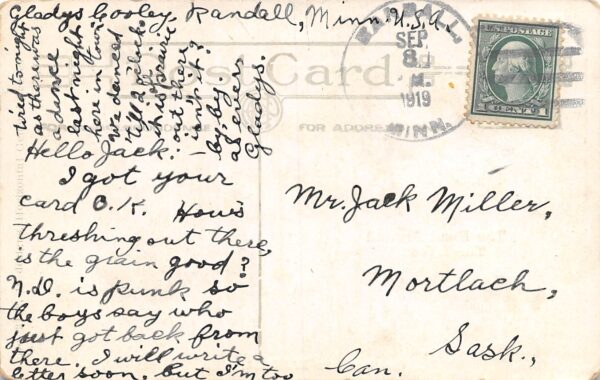 Gladys Cooley, Randall, Minn. U.S.A.
Post Card
FOR ADDRESS
RANDALL,
SEP
8
M.
1919
MINN.
U.S. POSTAGE
CENTS
Hello Jack: -
I got your
card O.K. How's
threshing out there,
is the grain good?
N.D. is punk so
the boys say who
just got back from
there. I will write a
letter soon, but I'm too
tired tonight
as there was
a dance
last night
here in town
We danced
till 2 o'clock
prairie
out there
isn't it?
by, by.
as ever
Gladys.
Mr. Jack Miller,
Mortlach,
Sask.,
Can.